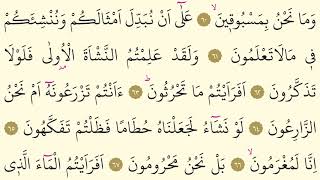 وَمَا نَحْنُ بِمَسْبُوقٖينَۙ ﴿٦٠﴾ عَلٰٓى اَنْ نُبَدِّلَ اَمْثَالَكُمْ وَنُنْشِئَكُمْ
فٖى مَالَاتَعْلَمُونَ ﴿٦١﴾ وَلَقَدْ عَلِمْتُمُ النَّشْاَةَ الْاُولٰى فَلَوْلَا
تَذَكَّرُونَ ﴿٦٢﴾ اَفَرَاَيْتُمْ مَا تَحْرُثُونَؕ ﴿٦٣﴾ ءَاَنْتُمْ تَزْرَعُونَهُٓ اَمْ نَحْنُ
الزَّارِعُونَ ﴿٦٤﴾ لَوْ نَشَٓاءُ لَجَعَلْنَاهُ حُطَامًا فَظَلْتُمْ تَفَكَّهُونَ ﴿٦٥﴾
اِنَّا لَمُغْرَمُونَۙ ﴿٦٦﴾ بَلْ نَحْنُ مَحْرُومُونَ ﴿٦٧﴾ اَفَرَاَيْتُمُ الْمَٓاءَ الَّذٖى